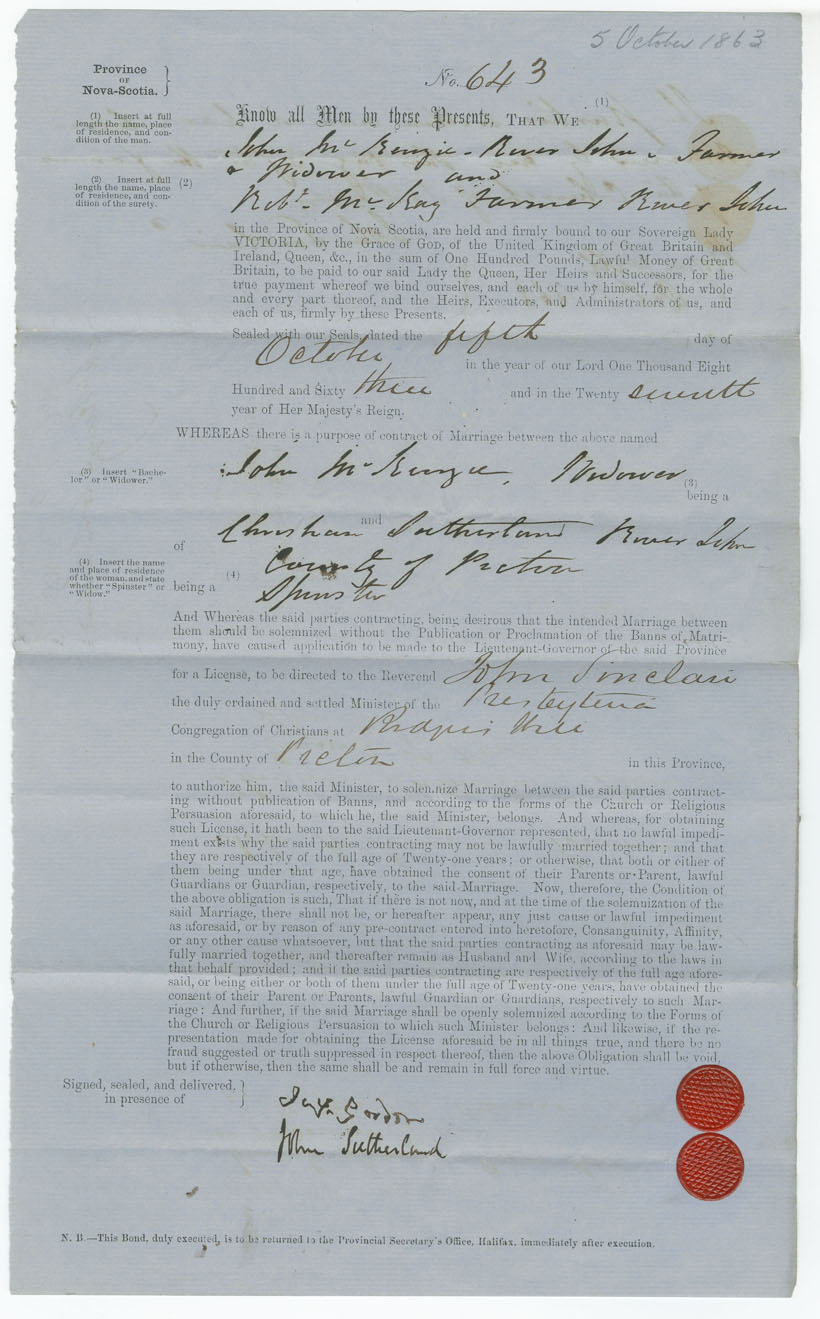 5 October 1863
Province
OF
Nova-Scotia.
No. 643
(1) Insert at full
length the name, place
of residence, and con-
dition of the man.
Know all Men by these Presents, THAT WE (1)
John Mc Kenzie - River John - Farmer
& Widower and
(2) Insert at full
length the name, place
of residence, and con-
dition of the surety.
(2)
Robt. McKay Farmer River John
in the Province of Nova Scotia, are held and firmly bound to our Sovereign Lady
VICTORIA, by the Grace of GOD, of the United Kingdom of Great Britain and
Ireland, Queen, &c., in the sum of One Hundred Pounds, Lawful Money of Great
Britain, to be paid to our said Lady the Queen, Her Heirs and Successors, for the
true payment whereof we bind ourselves, and each of us by himself, for the whole
and every part thereof, and the Heirs, Executors, and Administrators of us, and
each of us, firmly by these Presents.
Sealed with our Seals, dated the fifth day of
October in the year of our Lord One Thousand Eight
Hundred and Sixty three and in the Twenty seventh
year of Her Majesty's Reign.
WHEREAS there is a purpose of contract of Marriage between the above named
(3) Insert "Bache-
lor" or "Widower."
John McKenzie, Widower (3)
being a
and
of Christian Sutherland River John
(4) Insert the name
and place of residence
of the woman, and state
whether "Spinster" or
"Widow."
(4) County of Pictou
being a Spinster
And Whereas the said parties contracting, being desirous that the intended Marriage between
them should be solemnized without the Publication or Proclamation of the Banns of Matri-
mony, have caused application to be made to the Lieutenant-Governor of the said Province
for a License, to be directed to the Reverend John Sinclair
the duly ordained and settled Minister of the Presbyteria
Congregation of Christians at Rodgers Hill
in the County of Pictou in this Province,
to authorize him, the said Minister, to solemnize Marriage between the said parties contract-
ing without publication of Banns, and according to the forms of the Church or Religious
Persuasion aforesaid, to which he, the said Minister, belongs. And whereas, for obtaining
such License, it hath been to the said Lieutenant-Governor represented, that no lawful impedi-
ment exists why the said parties contracting may not be lawfully married together; and that
they are respectively of the full age of Twenty-one years; or otherwise, that both or either of
them being under that age, have obtained the consent of their Parents or Parent, lawful
Guardians or Guardian, respectively, to the said Marriage. Now, therefore, the Condition of
the above obligation is such, That if there is not now, and at the time of the solemnization of the
said Marriage, there shall not be, or hereafter appear, any just cause or lawful impediment
as aforesaid, or by reason of any pre-contract entered into heretofore, Consanguinity, Affinity,
or any other cause whatsoever, but that the said parties contracting as aforesaid may be law-
fully married together, and thereafter remain as Husband and Wife, according to the laws in
that behalf provided; and if the said parties contracting are respectively of the full age afore-
said, or being either or both of them under the full age of Twenty-one years, have obtained the
consent of their Parent or Parents, lawful Guardian or Guardians, respectively to such Mar-
riage: And further, if the said Marriage shall be openly solemnized according to the Forms of
the Church or Religious Persuasion to which such Minister belongs: And likewise, if the re-
presentation made for obtaining the License aforesaid be in all things true, and there be no
fraud suggested or truth suppressed in respect thereof, then the above Obligation shall be void,
but if otherwise, then the same shall be and remain in full force and virtue.
Signed, sealed, and delivered,
in presence of
Gordon
John Sutherland
N. B.—This Bond, duly executed, is to be returned to the Provincial Secretary's Office, Halifax, immediately after execution.